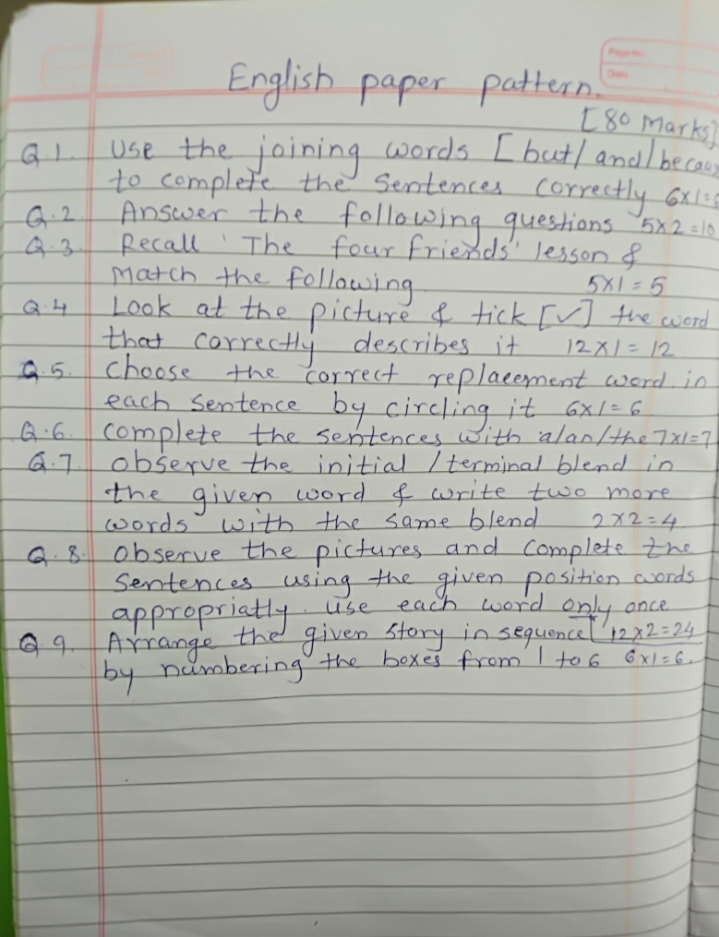 Page No.
Date
English paper pattern.
[80 Marks]
Q 1. Use the joining words [but/and/becaus
to complete the sentences correctly 6x1=6
Q.2 Answer the following questions 5x2=10
Q.3. Recall 'The four friends' lesson &
match the following 5x1=5
Q.4 Look at the picture & tick [✓] the word
that correctly describes it 12x1=12
Q.5. Choose the correct replacement word in
each sentence by circling it 6x1=6
Q.6. complete the sentences with a/an/the 7x1=7
Q.7. Observe the initial / terminal blend in
the given word & write two more
words with the same blend 2x2=4
Q.8. Observe the pictures and complete the
sentences using the given position words
appropriatly. use each word only once
12x2=24
Q 9. Arrange the given story in sequence
by numbering the boxes from 1 to 6 6x1=6.